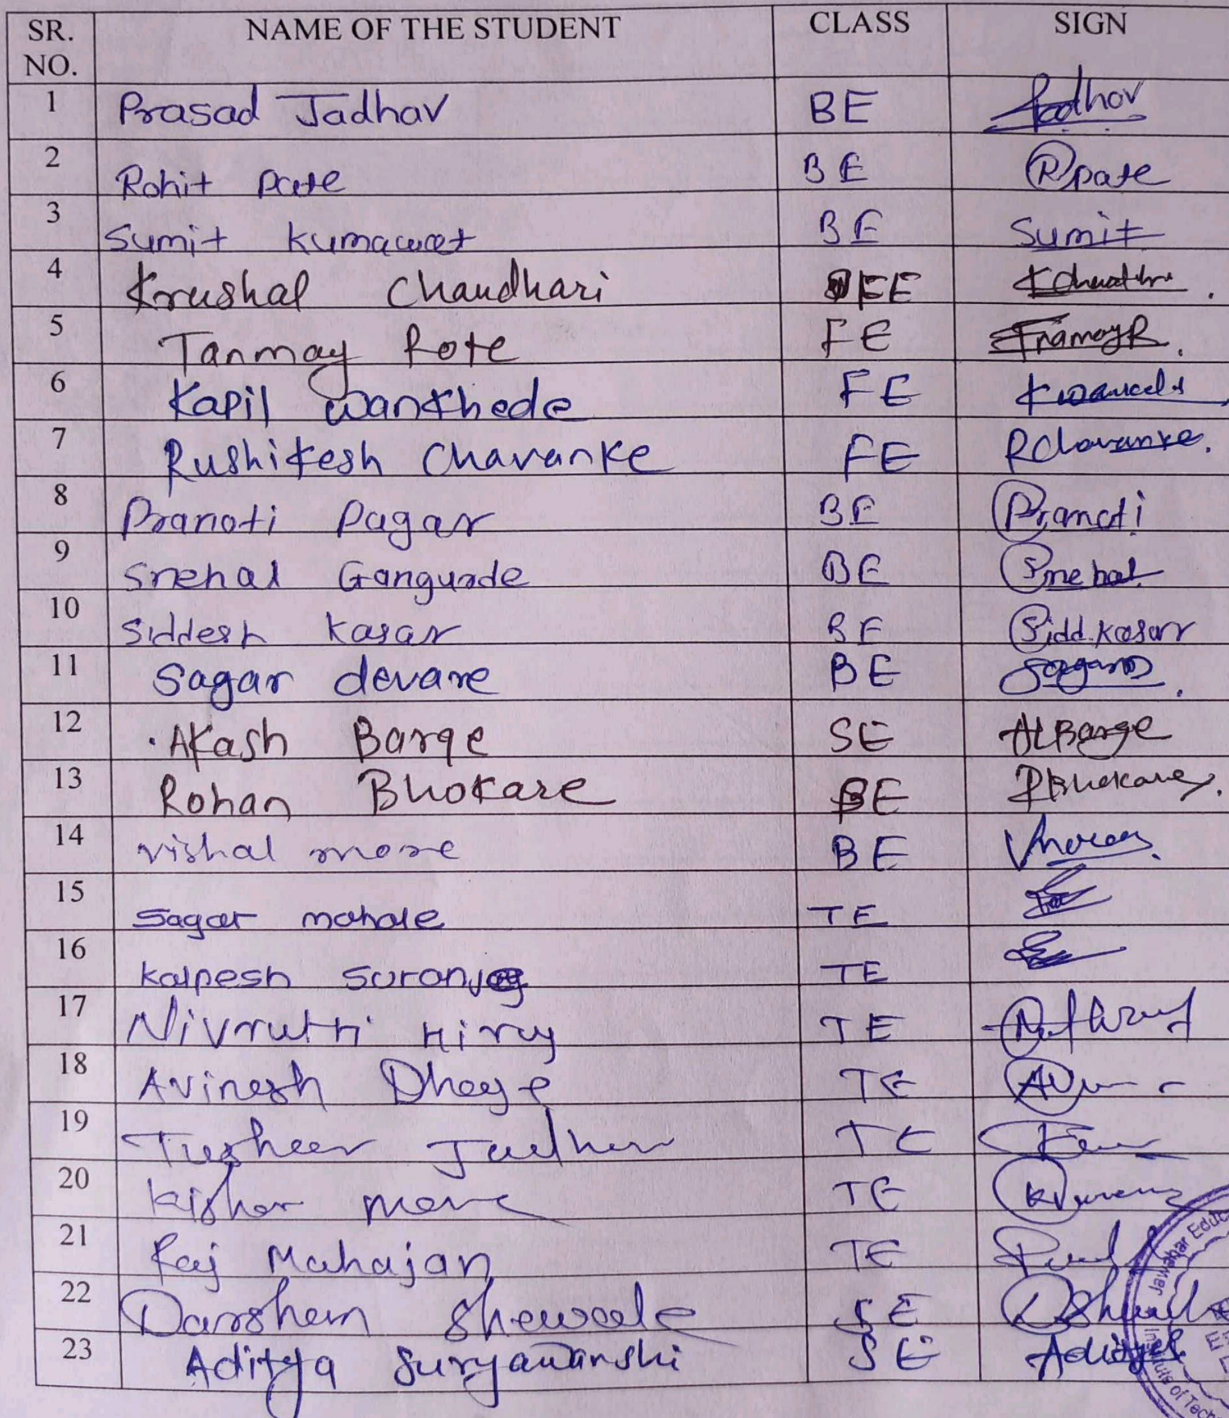 SR. NO. NAME OF THE STUDENT CLASS SIGN
1 Prasad Jadhav BE Jadhav
2 Rohit Pate BE Rpate
3 Sumit Kumawat BE Sumit
4 Krushal Chaudhari FE
5 Tanmay Rote FE TnamayR.
6 Kapil Wankhede FE
7 Rushikesh Chavanke FE RChavanke.
8 Pranoti Pagar BE Pranoti
9 Snehal Gangurde BE Snehal
10 Siddesh Kasar BE Sidd.Kasar
11 Sagar devare BE
12 Akash Barge SE ALBarge
13 Rohan Bhokare BE RBhokare.
14 vishal more BE Vmore
15 Sagar mahale TE
16 Kalpesh TE
17 Nivrutti Hiray TE
18 Avinash TE
19 Tushar Jadhav TE
20 Kishor more TE
21 Raj Mahajan TE
22 Darshan Shewale SE
23 Aditya Suryawanshi SE Aditya
Jawahar Educ
Institute of Tech